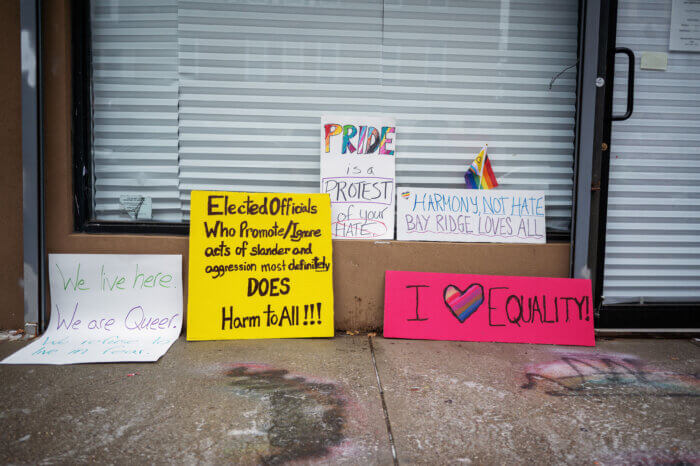 PRIDE
is a
PROTEST
of your
HATE.
HARMONY, NOT HATE
BAY RIDGE LOVES ALL
We live here.
We are Queer.
live in fear.
Elected Officials
Who Promote/Ignore
acts of slander and
aggression most definitely
DOES
Harm to All!!!
I EQUALITY!